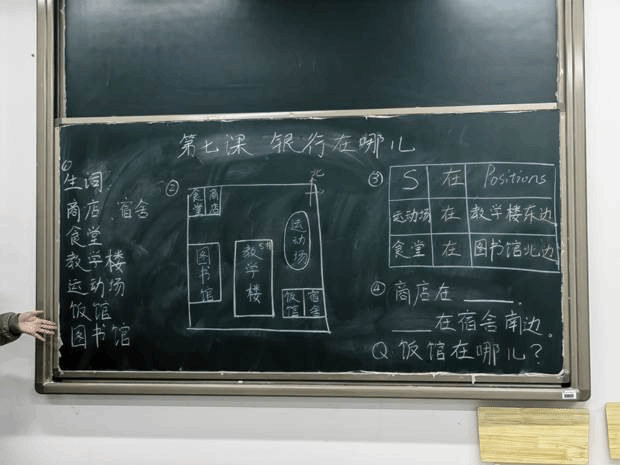 第七课 银行在哪儿
①
生词
商店 宿舍
食堂
教学楼
运动场
饭馆
图书馆
②
北
食堂
商店
运动场
图书馆
教学楼
饭馆
宿舍
③
S 在 Positions
运动场 在 教学楼东边
食堂 在 图书馆北边
④ 商店在 ____。
____在宿舍南边。
Q 饭馆在哪儿?